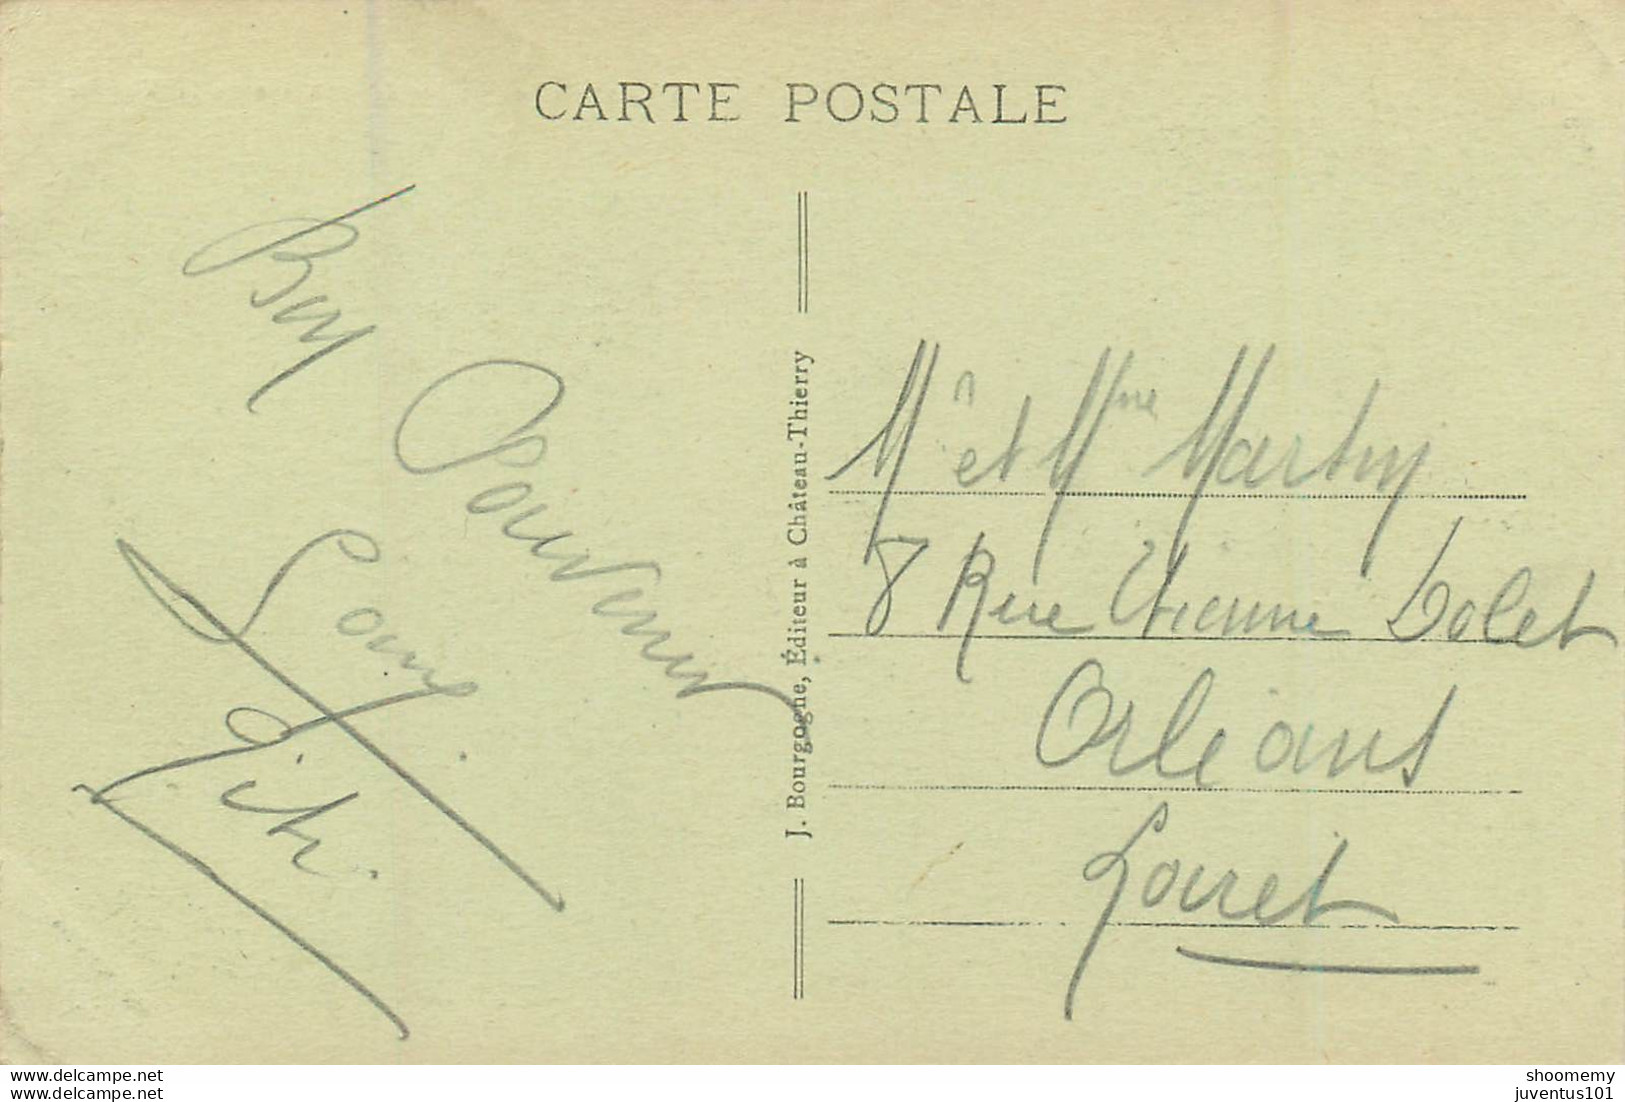 CARTE POSTALE
Bon
Souvenir
J. Bourgogne, Éditeur à Château-Thierry
Mr et Mme Martin
8 Rue Etienne Dolet
Orléans
Loiret
www.delcampe.net
www.delcampe.net
shoomemy
juventus101